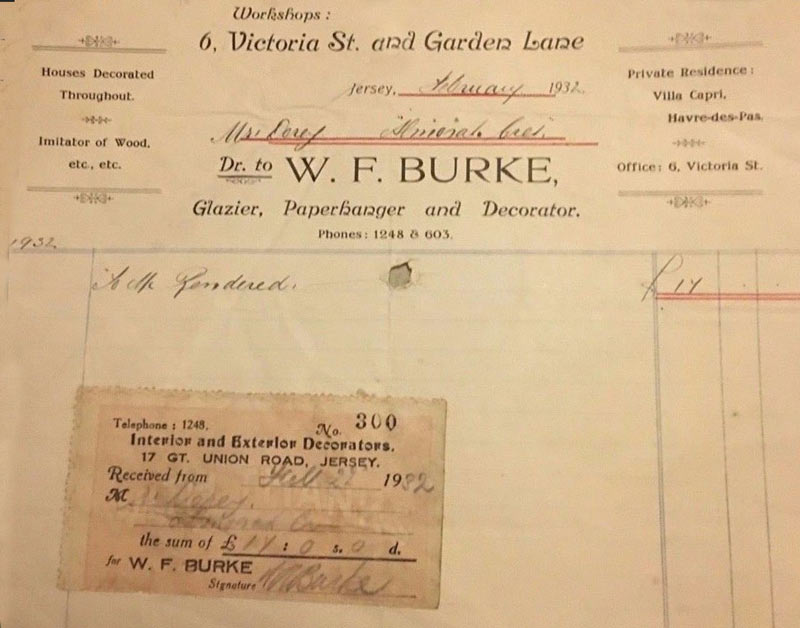 Workshops :
6, Victoria St. and Garden Lane
Houses Decorated
Throughout.
Imitator of Wood,
etc., etc.
Jersey, February 1932.
Mr. Dorey
Private Residence :
Villa Capri,
Havre-des-Pas.
Office : 6, Victoria St.
Dr. to W. F. BURKE,
Glazier, Paperhanger and Decorator.
Phones : 1248 & 603.
1932
Rendered.
£ 14
Telephone : 1248.
No. 300
Interior and Exterior Decorators.
17 GT. UNION ROAD, JERSEY.
Received from 1932
M Dorey.
the sum of £ 14 : 0 s. 0 d.
for W. F. BURKE
Signature W F Burke